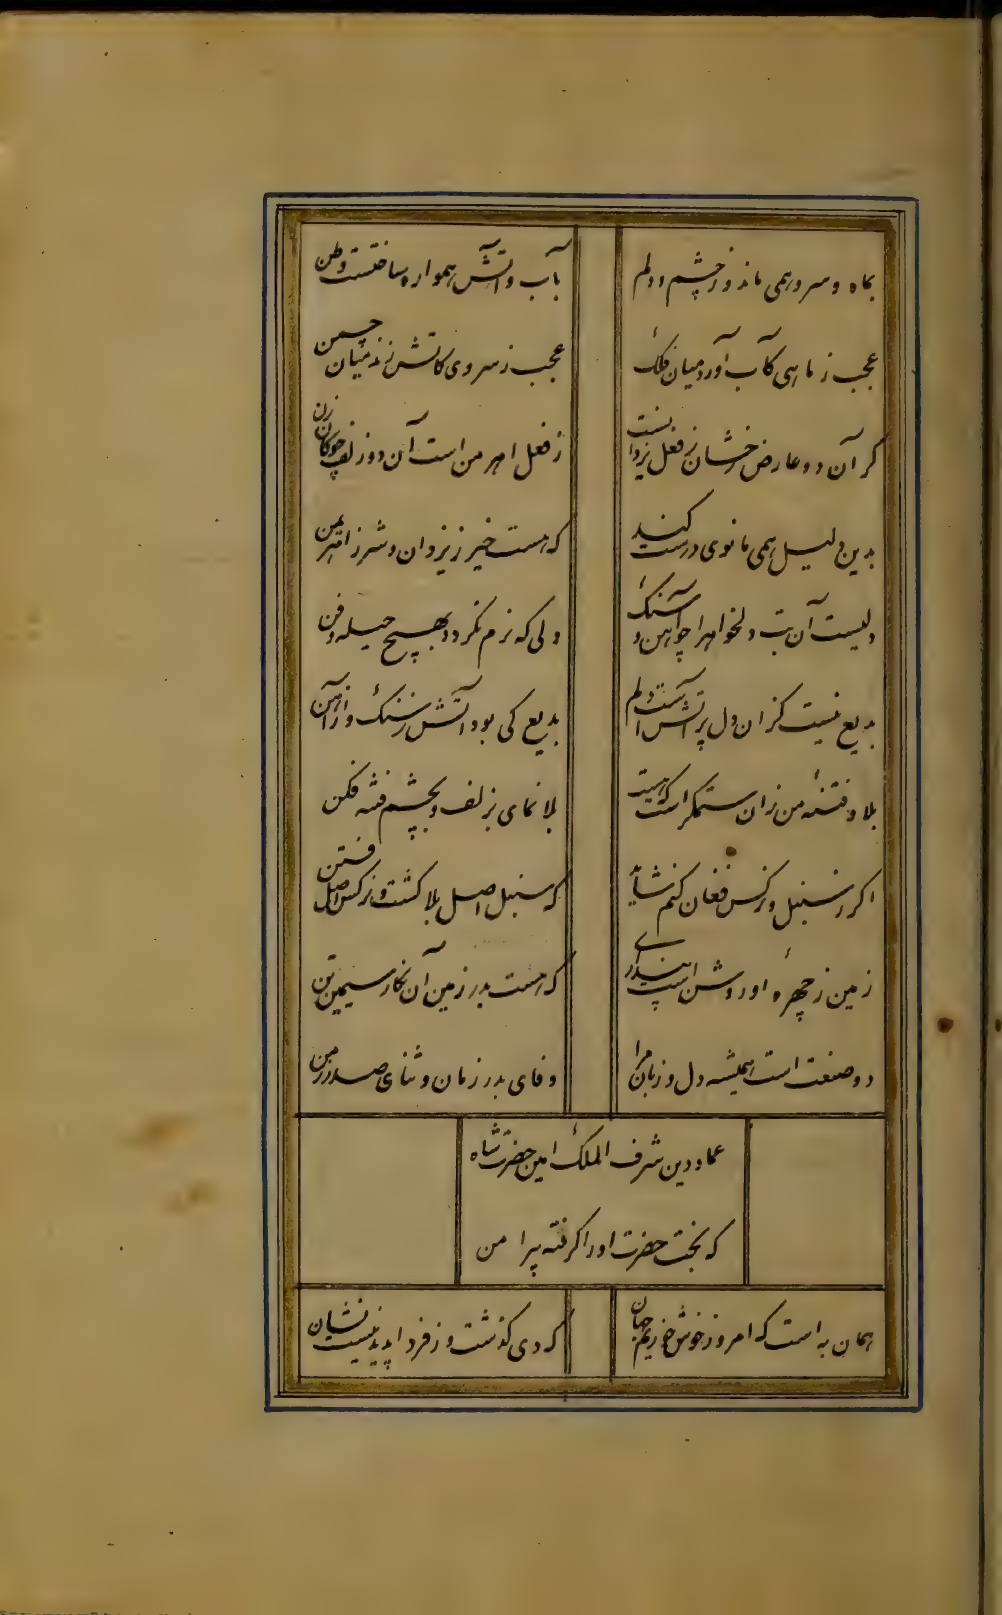 بماه و سرو همی ماند و ز چشم و دلم
بآب و آتش همواره ساختست وطن
عجب ز ماهی کآب آورد میان فلک
عجب ز سروی کاتش زند میان چمن
گر آن دو عارض رخشان ز فعل یزدانست
ز فعل اهرمن است آن دو زلف چوکان زن
بدین دلیل همی مانوی درست کنید
که هست خیر ز یزدان و شر ز اهریمن
دلیست آن بت دلخواه را چو آهن و سنگ
دلی که نرم نکردد بهیچ حیله و فن
بدیع نیست کزان دل پر آتش است دلم
بدیع کی بود آتش ز سنک و از آهن
بلا و فتنهٔ من زان ستمکر است که هست
بلا نمای بزلف و بچشم فتنه فکن
اکر ز سنبل و نرکس فغان کنم شاید
که سنبل اصل بلا کشت و نرکس اصل فتن
زمین ز چهرهٔ او روشن است پنداری
که هست بدر زمین آن نکار سیمین تن
دو صنعت است همیشه دل و زبان مرا
وفای بدر زمان و ثنای صدر زمن
عماد دین شرف الملک امین حضرت شاه
که بخت حضرت او را کرفته پیرامن
همان به است که امروز خوش خوریم جهان
که دی کذشت و ز فردا پدید نیست نشان